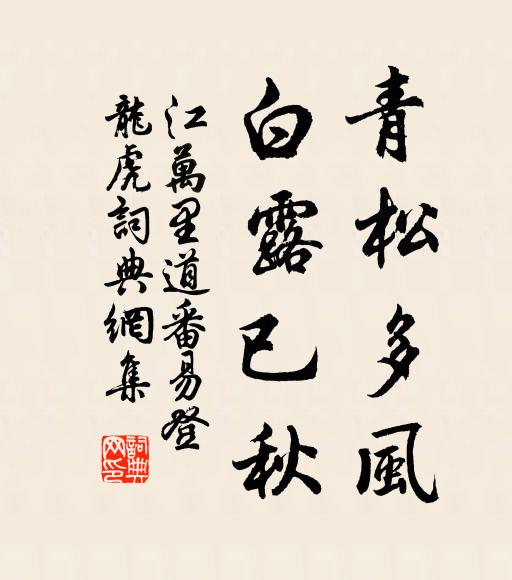 青松多風
白露已秋
江萬里道番易登
龍虎詞典網集
詞典
网印